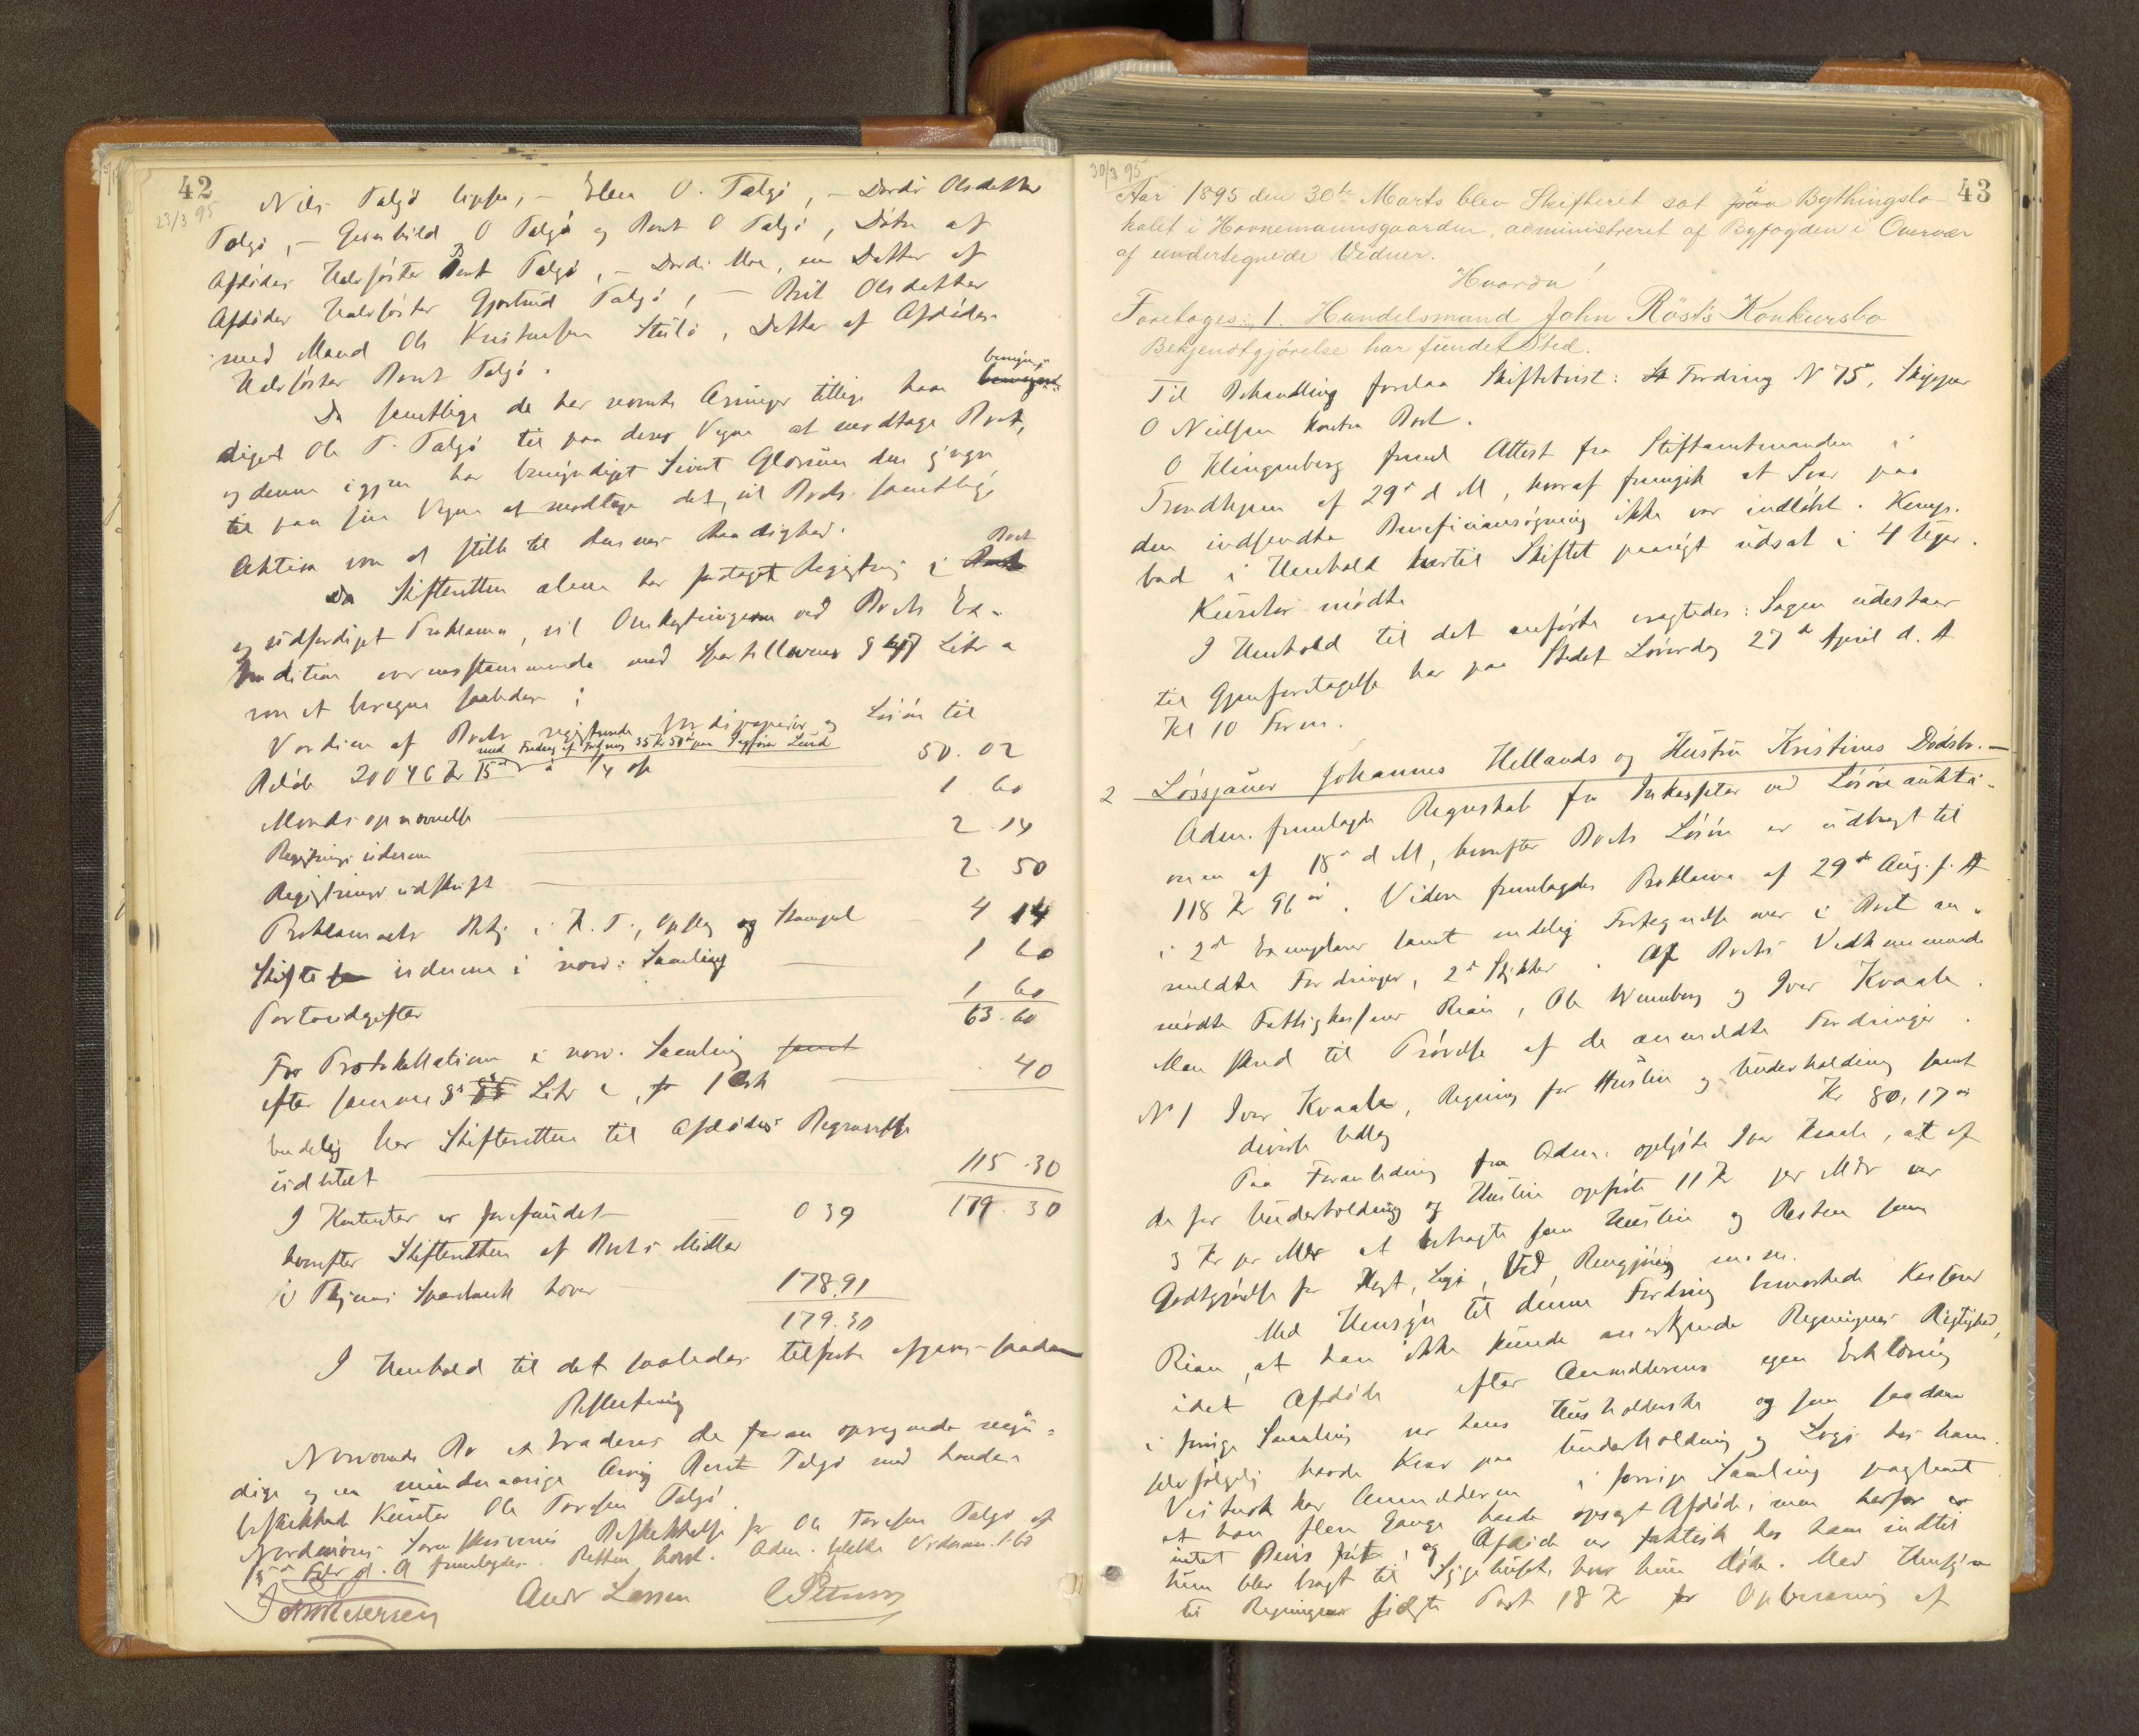 42
23/3 95
Nils Talgö ligesaa, - Elen O. Talgö, - Dordi Olsdatter
Talgö, - Gunhild O Talgö og Beret O Talgö, Døtre af
Afdødes Halvsöster Beret Talgö, - Dordi Moe, en Datter af
Afdødes Halvsöster Gjertrud Talgö, - Brit Olsdatter
med Mand Ole Kristensen , Datter af Afdødes
Halvsöster Beret Talgö.
Da samtlige de her nævnte Arvinger tillige have bemyn-
diget Ole T. Talgö til paa deres Vegne at modtage Boet,
og denne igjen har bemyndiget Sivert Glærum den yngre
til paa sine Vegne at modtage det, vil Boets samtlige
Aktiva være at stille til dennes Raadighed.
Da Skifteretten alene har foretaget Registrering i Boet
og udfærdiget Proklama, vil Omkostningerne ved Boets Ex-
tradition overensstemmende med Sportellovens § 47 Litr a
være at beregne saaledes:
Værdien af Boets registrerede Værdipapirer og Lösöre til
med Fradrag af 35 Kr 50 Sagförer Lund
Belöb 20046 Kr 15 ör à 1/4 % 50.02
Mænds opnævnelse 1.60
Registrerings viderne 2.14
Registrerings udskrift 2.50
Proklamaets Bekj. i K. T., Opslag og Stempel 4 14
Skifte viderne i nærv: Samling 1 60
Portoudgifter 1 60
63.60
For Protokollation i nærv. Samling samt
efter samme § Litr c, for 1 Ark 40
Endelig har Skifteretten til Afdødes Begravelse
udbetalt 115.30
I Kontanter er forefundet 0 39 179.30
hvorefter Skifteretten af Boets Midler
i Byens Sparebank hæver 178.91
179.30
I Henhold til det saaledes tilførte afgaves saadan
Beslutning
Nærværende Bo extraderes de foran opregnede myn-
dige og den mindreaarige Arving Beret Talgö med hendes
beskikkede Kurator Ole Toresen Talgö.
Nordmörs Sorenskriveris Beskikkelse for Ole Toresen Talgö af
15de Febr d. A fremlagdes. Retten hævet. Adm. betalte Vidnerne 1.60
Petersen Andr Larsen C Petersen
30/3 95
43
Aar 1895 den 30te Marts blev Skifteret sat paa i Bythingslo-
kalet i Hornemannsgaarden, administreret af Byfogden i Overvær
af undertegnede Vidner.
Hvorda!
Foretoges: 1. Handelsmand John Rösts Konkursbo
Bekjendtgjörelse har fundet Sted.
Til Behandling forelaa Skiftetvist: Fordring N 75, Skipper
O Neilsen kontra Boet.
O Klingenberg fremla Attest fra Stiftamtmanden i
Trondhjem af 29de d M, hvoraf fremgik at Svar paa
den indsendte Beneficieansøgning ikke var indløbet. Komp.
bad i Henhold hertil Skiftet paanyt udsat i 4 Uger.
Kurator mødte
I Henhold til det anførte eragtedes: Sagen udestaar
til Gjenforetagelse her paa Stedet Lörerdag 27de April d. A
Kl 10 Form.
2 Løssjauer Johannes Hellands og Hustru Kristines Dødsbo. -
Adm. fremlagde Regnskab fra Inkassator ved Lösöreauktio-
nen af 18de d M, hvorefter Boets Lösöre er udbragt til
118 Kr 96 ör. Videre fremlagdes Proklama af 29de Aug. f. A
i 2de Exemplarer samt endelig Fortegnelse over i Boet an-
meldte Fordringer, 2de Stykker. Af Boets Vedkommende
mødte Fattigkasserer Rian, Ole Wennberg og Iver Kvaale.
Man skred til Prøvelse af de anmeldte Fordringer.
N 1 Iver Kvaale, Regning for Husleie og Underholdning samt
diverse Udlæg Kr 80,17 ör
Paa Foranledning fra Adm. oplyste Iver Kvaale, at af
de for Underholdning og Husleie opførte 11 Kr per Md var
3 Kr per Md at betragte som Husleie og Resten som
Godtgjørelse for Kost, Lys, Ved, Rengjøring m. m.
Med Hensyn til denne Fordring bemærkede Kasserer
Rian, at han ikke kunde anerkjende Regningens Rigtighed,
idet Afdøde efter Anmelderens egen Erklæring
i forrige Samling var hans Husholderske og som saadan
selvfølgelig havde Krav paa Underholdning og Logi hos ham.
Vistnok har Anmelderen i forrige Samling paastaaet
at han flere Gange havde opsagt Afdøde, men herfor er
intet Bevis ført, og Afdøde var faktisk hos ham indtil
hun blev bragt til Sygehuset, hvor hun døde. Med Hensyn
til Regningens sidste Post 18 Kr for Opbevaring af